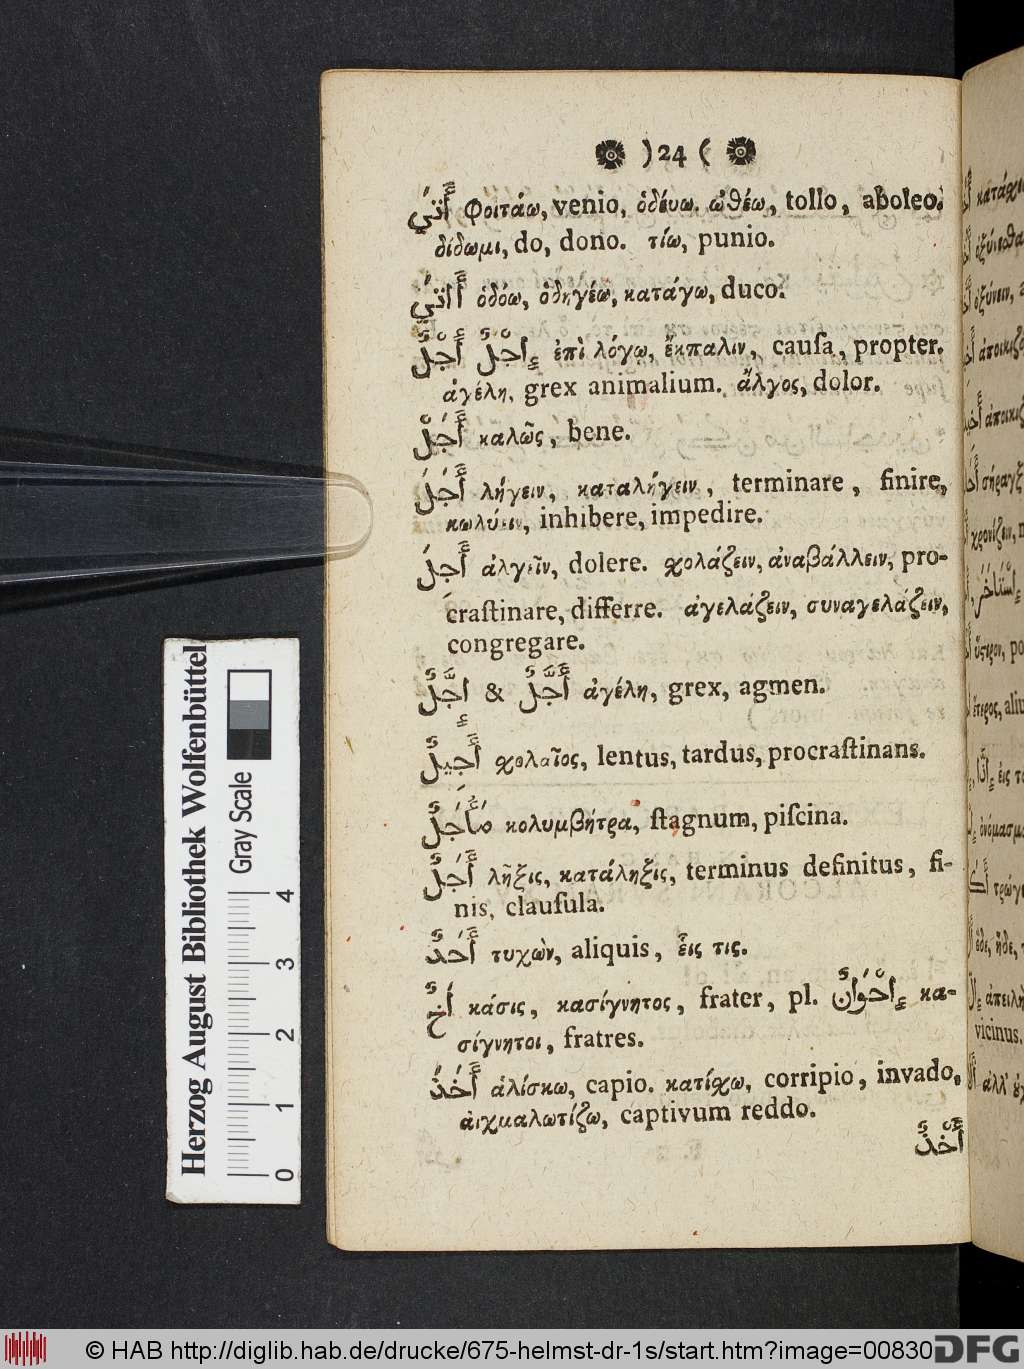 ) 24 (
أَتَيَ Φοιτάω, venio, ὁδέυω. ὠθέω, tollo, aboleo.
δίδωμι, do, dono. τίω, punio.
ὁδόω, ὁδηγέω, κατάγω, duco.
إِجْلٌ أَجْلٌ ἐπὶ λόγῳ, ἔκπαλιν, cauſa, propter.
ἀγέλη. grex animalium. ἄλγος, dolor.
أَجَلْ καλῶς, bene.
أَجَلَ λήγειν, καταλήγειν, terminare, finire,
κωλύειν, inhibere, impedire.
أَجِلَ ἀλγεῖν, dolere. σχολάζειν, ἀναβάλλειν, pro-
craſtinare, differre. ἀγελάζειν, συναγελάζειν,
congregare.
إِجَّلٌ & أُجَّلٌ ἀγέλη, grex, agmen.
أَجِيلٌ σχολαῖος, lentus, tardus, procraſtinans.
مَأْجَلٌ κολυμβήτρα, ſtagnum, piſcina.
أَجَلٌ λῆξις, κατάληξις, terminus definitus, fi-
nis, clauſula.
أَحَدٌ τυχὼν, aliquis, εἷς τις.
أَخٌ κάσις, κασίγνητος, frater, pl. إِخْوَانٌ κα-
σίγνητοι, fratres.
أَخَذَ ἁλίσκω, capio. κατίσχω, corripio, invado,
αιχμαλωτίζω, captivum reddo.
أَخْذٌ
κατάσχε
vicinus.
Herzog August Bibliothek Wolfenbüttel
Gray Scale
0 1 2 3 4
© HAB http://diglib.hab.de/drucke/675-helmst-dr-1s/start.htm?image=00830 DFG